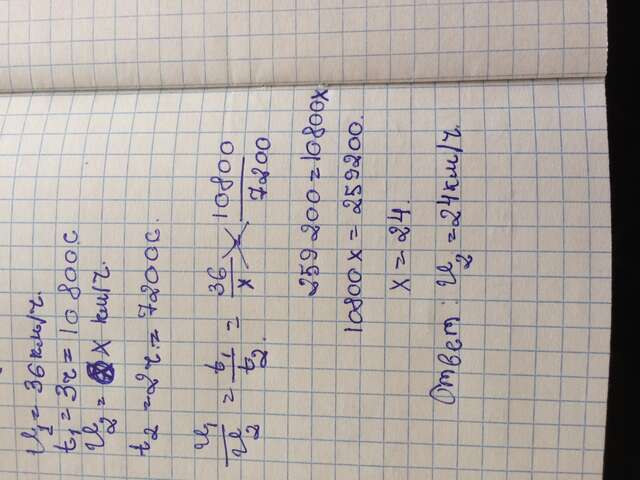 u₁ = 36 км/ч.
t₁ = 3ч = 10 800 с
u₂ = x км/ч.
t₂ = 2ч. = 7200 с.
u₁/u₂ = t₁/t₂. = 36/x = 10800/7200
259 200 = 10800x
10800x = 259200.
x = 24.
Ответ: u₂ = 24 км/ч.